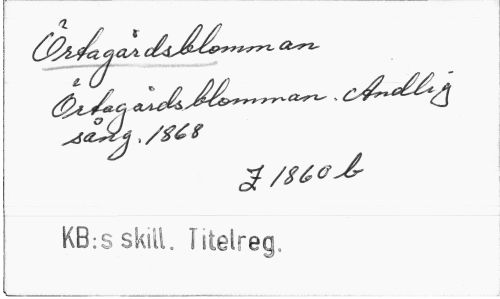 Örtagårdsblomman
Örtagårdsblomman. Andlig
sång. 1868
J 1860 b
KB:s skill. Titelreg.